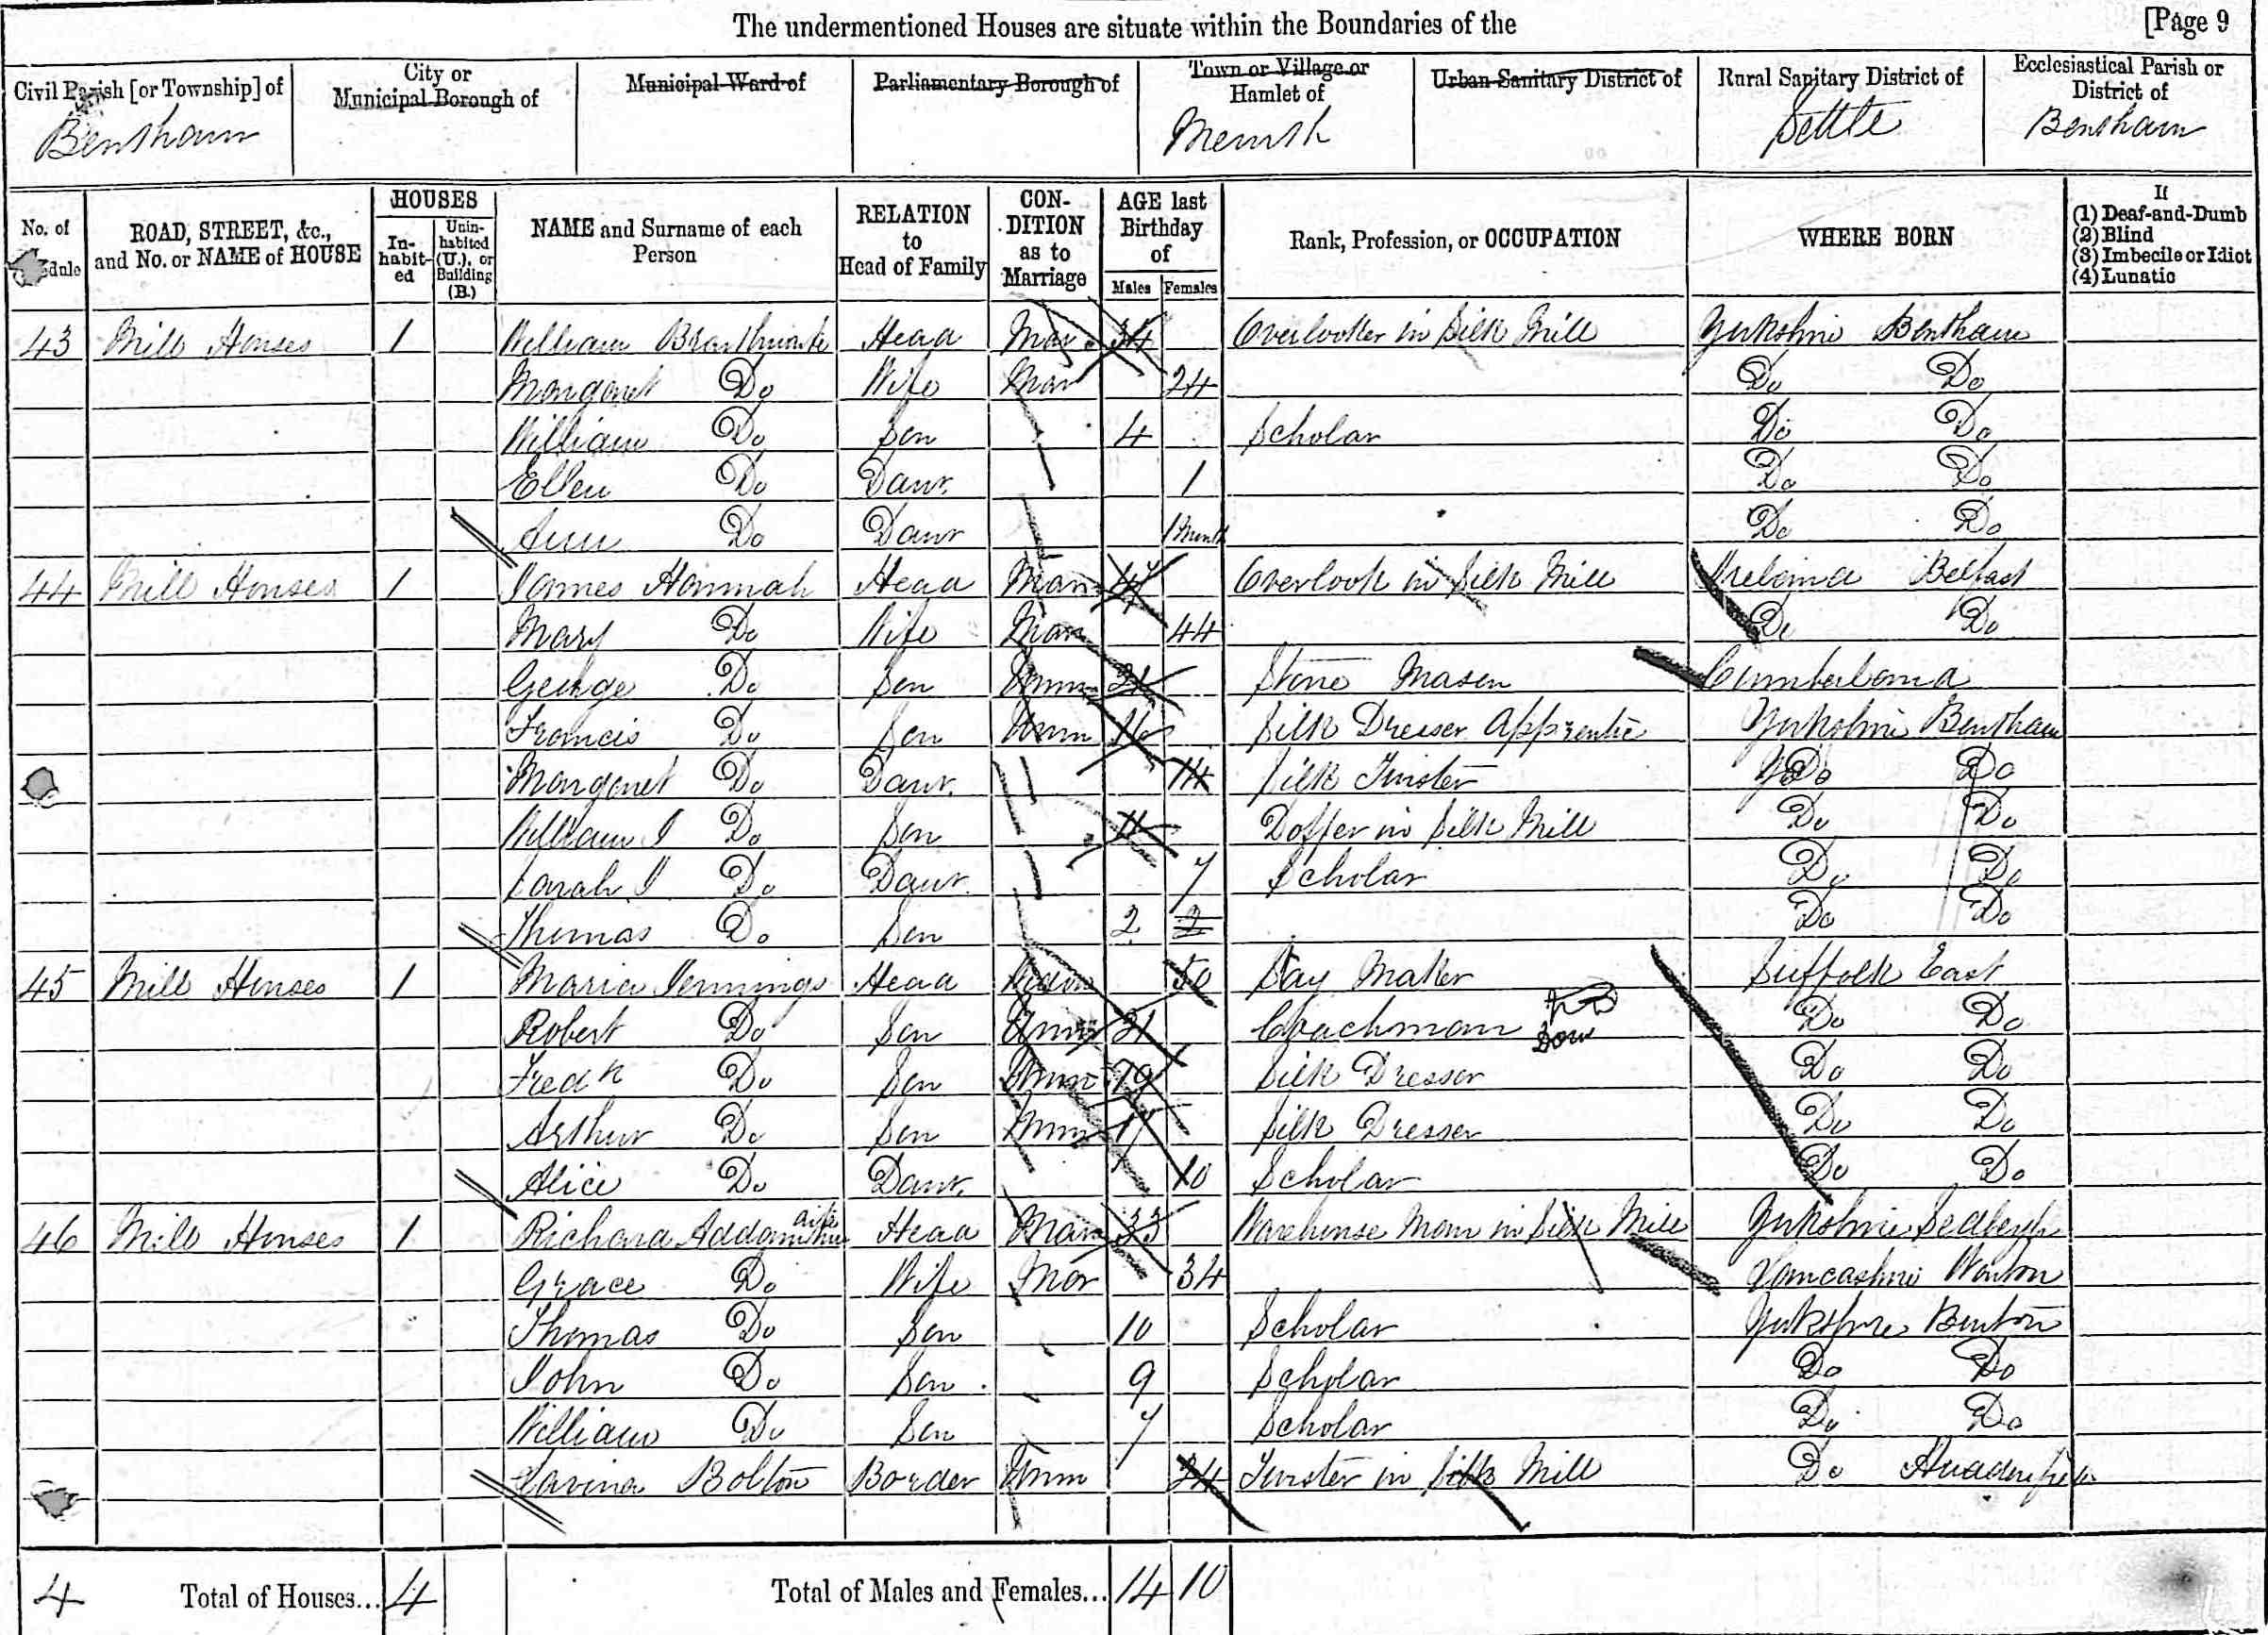 The undermentioned Houses are situate within the Boundaries of the [Page 9
Civil Parish [or Township] of City or Municipal Borough of Municipal Ward of Parliamentary Borough of Town or Village or Hamlet of Urban Sanitary District of Rural Sanitary District of Ecclesiastical Parish or District of
Bentham Settle Bentham
No. of Schedule ROAD, STREET, &c., and No. or NAME of HOUSE HOUSES Inhabited Uninhabited (U.), or Building (B.) NAME and Surname of each Person RELATION to Head of Family CONDITION as to Marriage AGE last Birthday of Males Females Rank, Profession, or OCCUPATION WHERE BORN If (1) Deaf-and-Dumb (2) Blind (3) Imbecile or Idiot (4) Lunatic
43 Mill Houses 1 William Braithwaite Head Mar 34 Overlooker in Silk Mill Yorkshire Bentham
Margaret Do Wife Mar 24 Do Do
William Do Son 4 Scholar Do Do
Ellen Do Daur. 1 Do Do
Ann Do Daur 1 Month Do Do
44 Mill Houses 1 James Hannah Head Mar 47 Overlook in Silk Mill Ireland Belfast
Mary Do Wife Mar 44 Do Do
George Do Son Unm 21 Stone Mason Cumberland
Francis Do Son Unm 16 Silk Dresser Apprentic Yorkshire Bentham
Margaret Do Daur. 14 Silk Twister Do Do
William J Do Son 11 Doffer in Silk Mill Do Do
Sarah J Do Daur. 7 Scholar Do Do
Thomas Do Son 2 2 Do Do
45 Mill Houses 1 Maria Jennings Head Widow 50 Maker Suffolk East
Robert Do Son Unm 21 Coachman Dom Do Do
Fredk Do Son Unm 19 Silk Dresser Do Do
Arthur Do Son Unm 17 Silk Dresser Do Do
Alice Do Daur. 10 Scholar Do Do
46 Mill Houses 1 Richard Head Mar 33 Warehouse Man in Silk Mill Yorkshire Sedbergh
Grace Do Wife Mar 34 Lancashire Warton
Thomas Do Son 10 Scholar Yorkshire Burton
John Do Son 9 Scholar Do Do
William Do Son 7 Scholar Do Do
Lavina Bolton Border Unm 24 Twister in Silk Mill Do
4 Total of Houses... 4 Total of Males and Females... 14 10